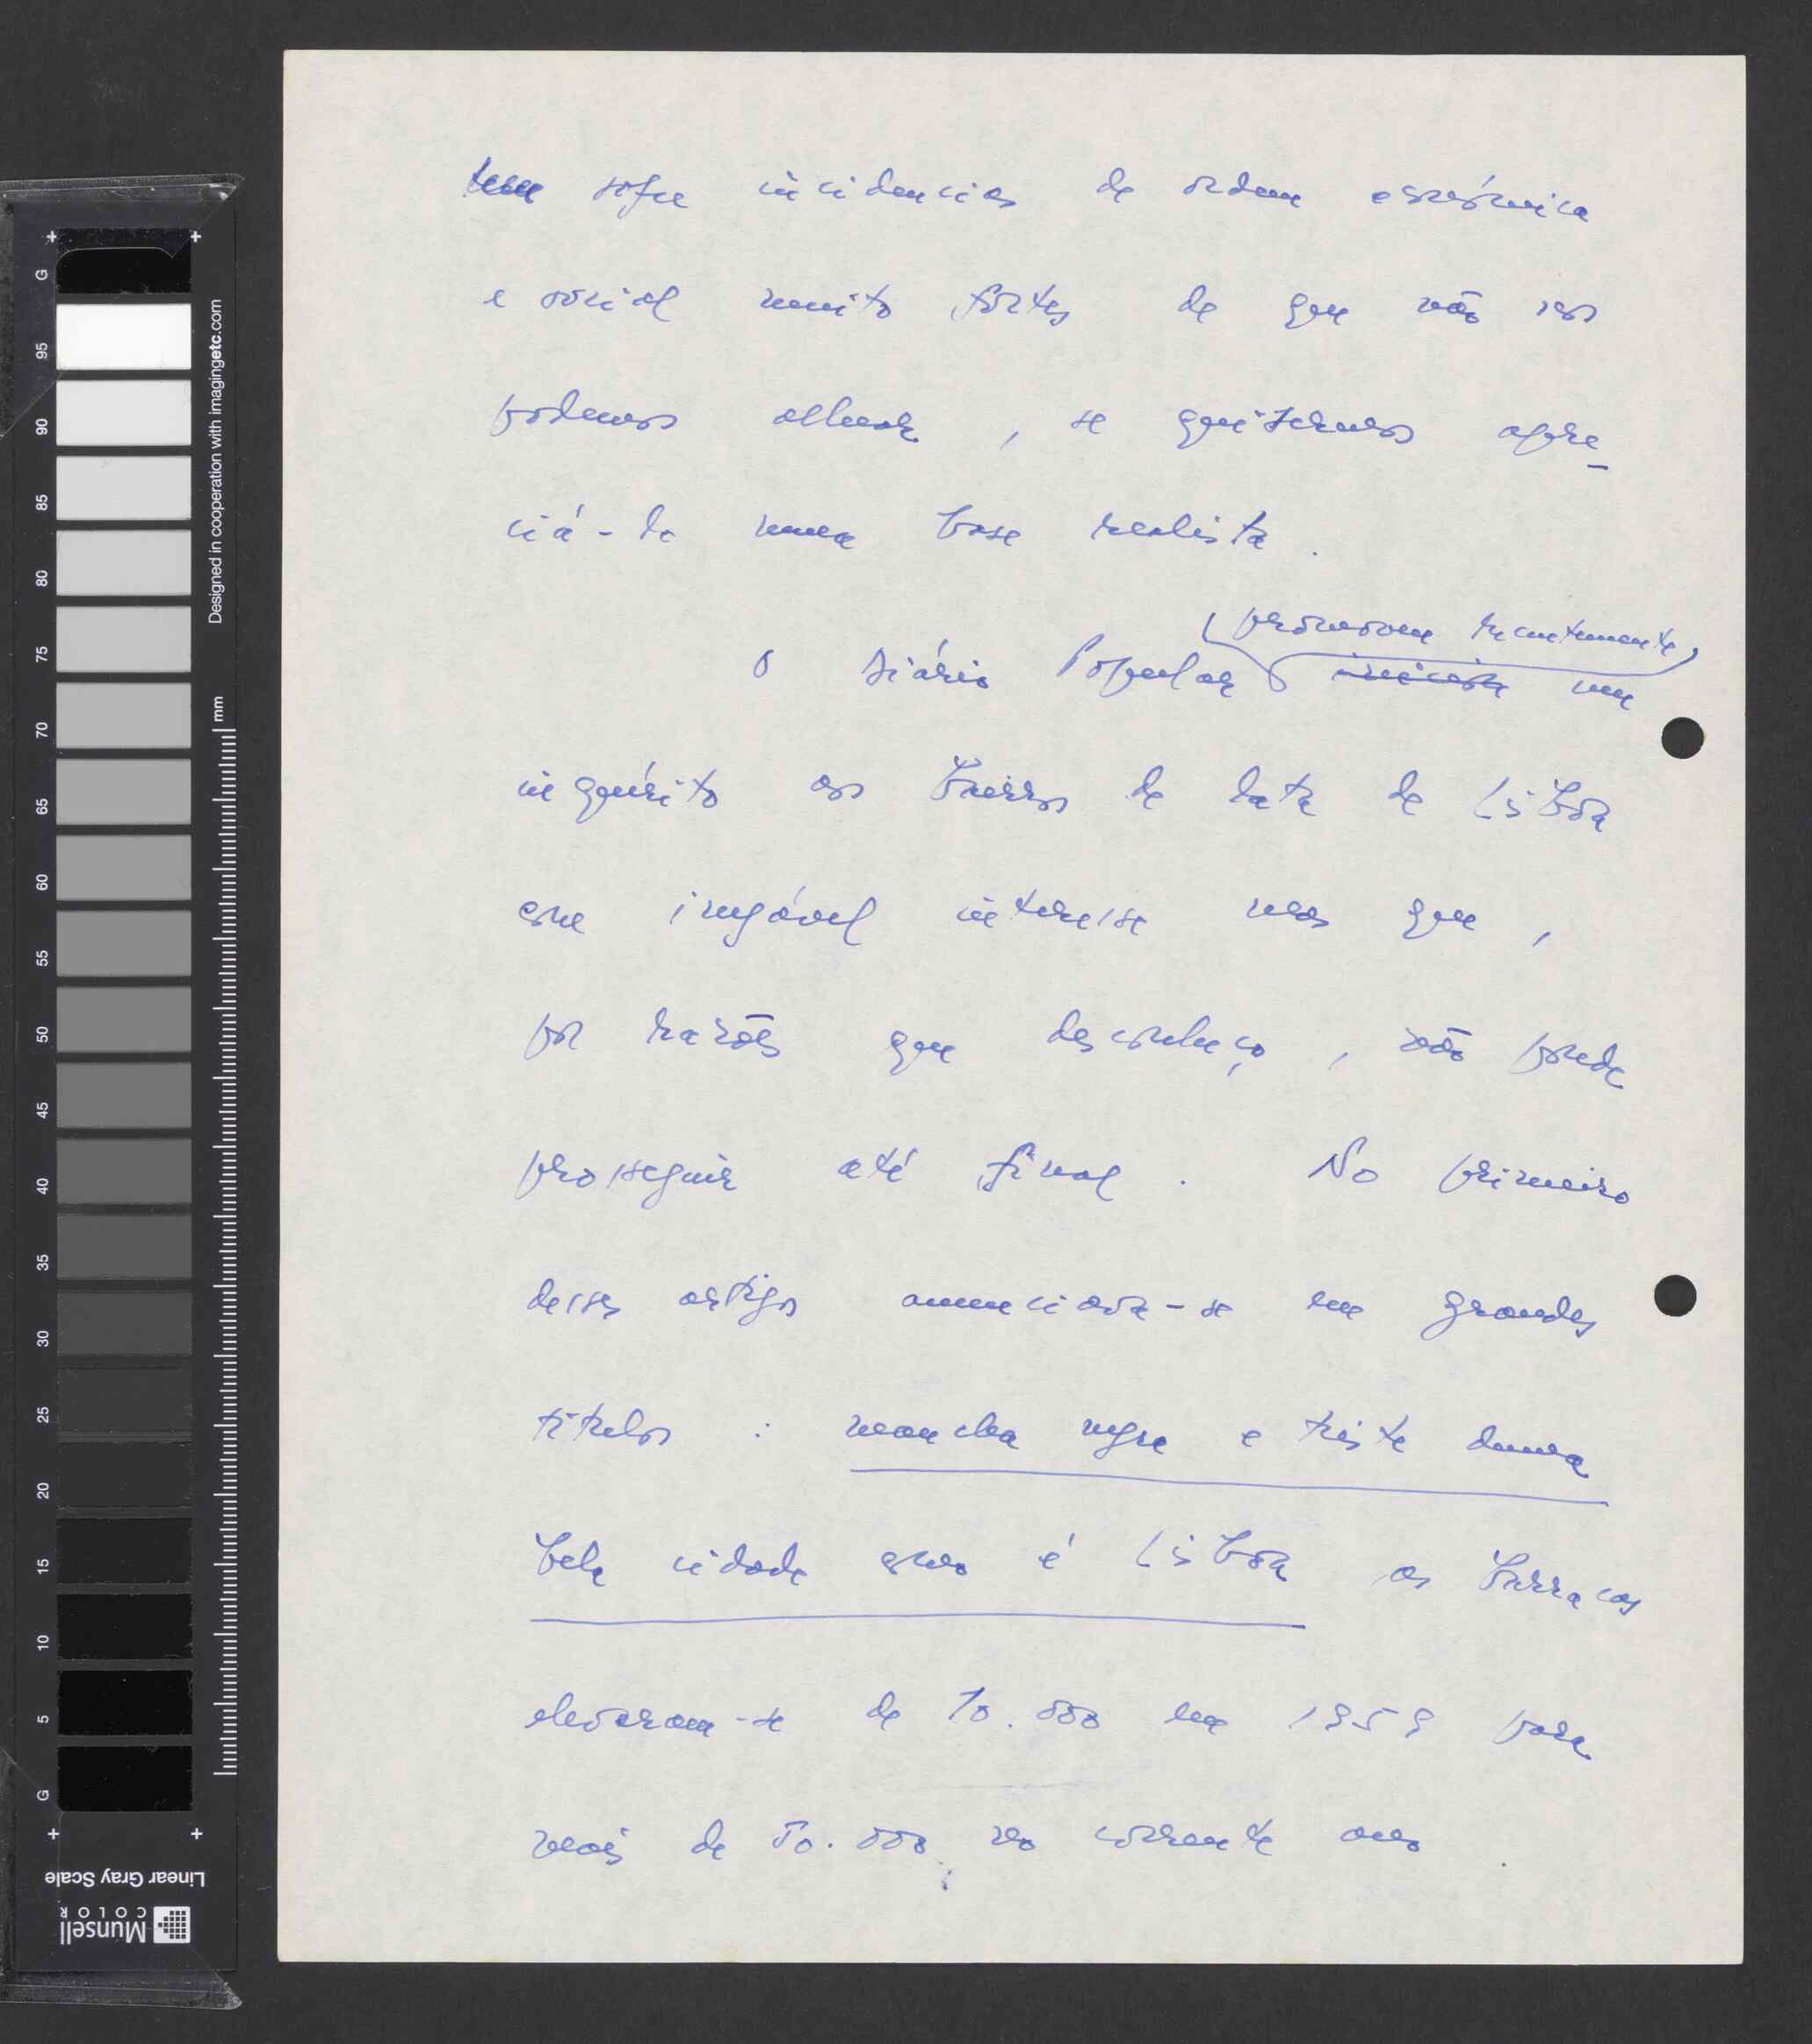 sofre incidencias de ordem económica
e social muito fortes de que não nos
podemos alhear, se quisermos apre-
ciá-lo numa base realista.
promoveu recentemente,
O Diário Popular um
inquérito aos bairros de lata de Lisboa
com inegável interesse mas que,
por razões que desconheço, não poude
prosseguir até final. No primeiro
desses artigos anunciava-se em grandes
títulos: mancha negra e triste duma
bela cidade como é Lisboa as barracas
elevaram-se de 10.000 em 1959 para
mais de 50.000 no corrente ano.
G
95
90
85
80
75
70
65
60
55
50
45
40
35
30
25
20
15
10
5
G
Designed in cooperation with imagingetc.com
mm
Linear Gray Scale
Munsell
COLOR